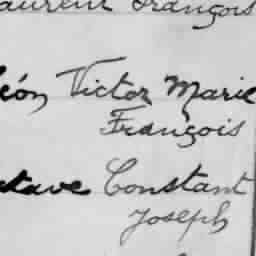 Laurent François
Léon Victor Marie
François
Octave Constant
Joseph